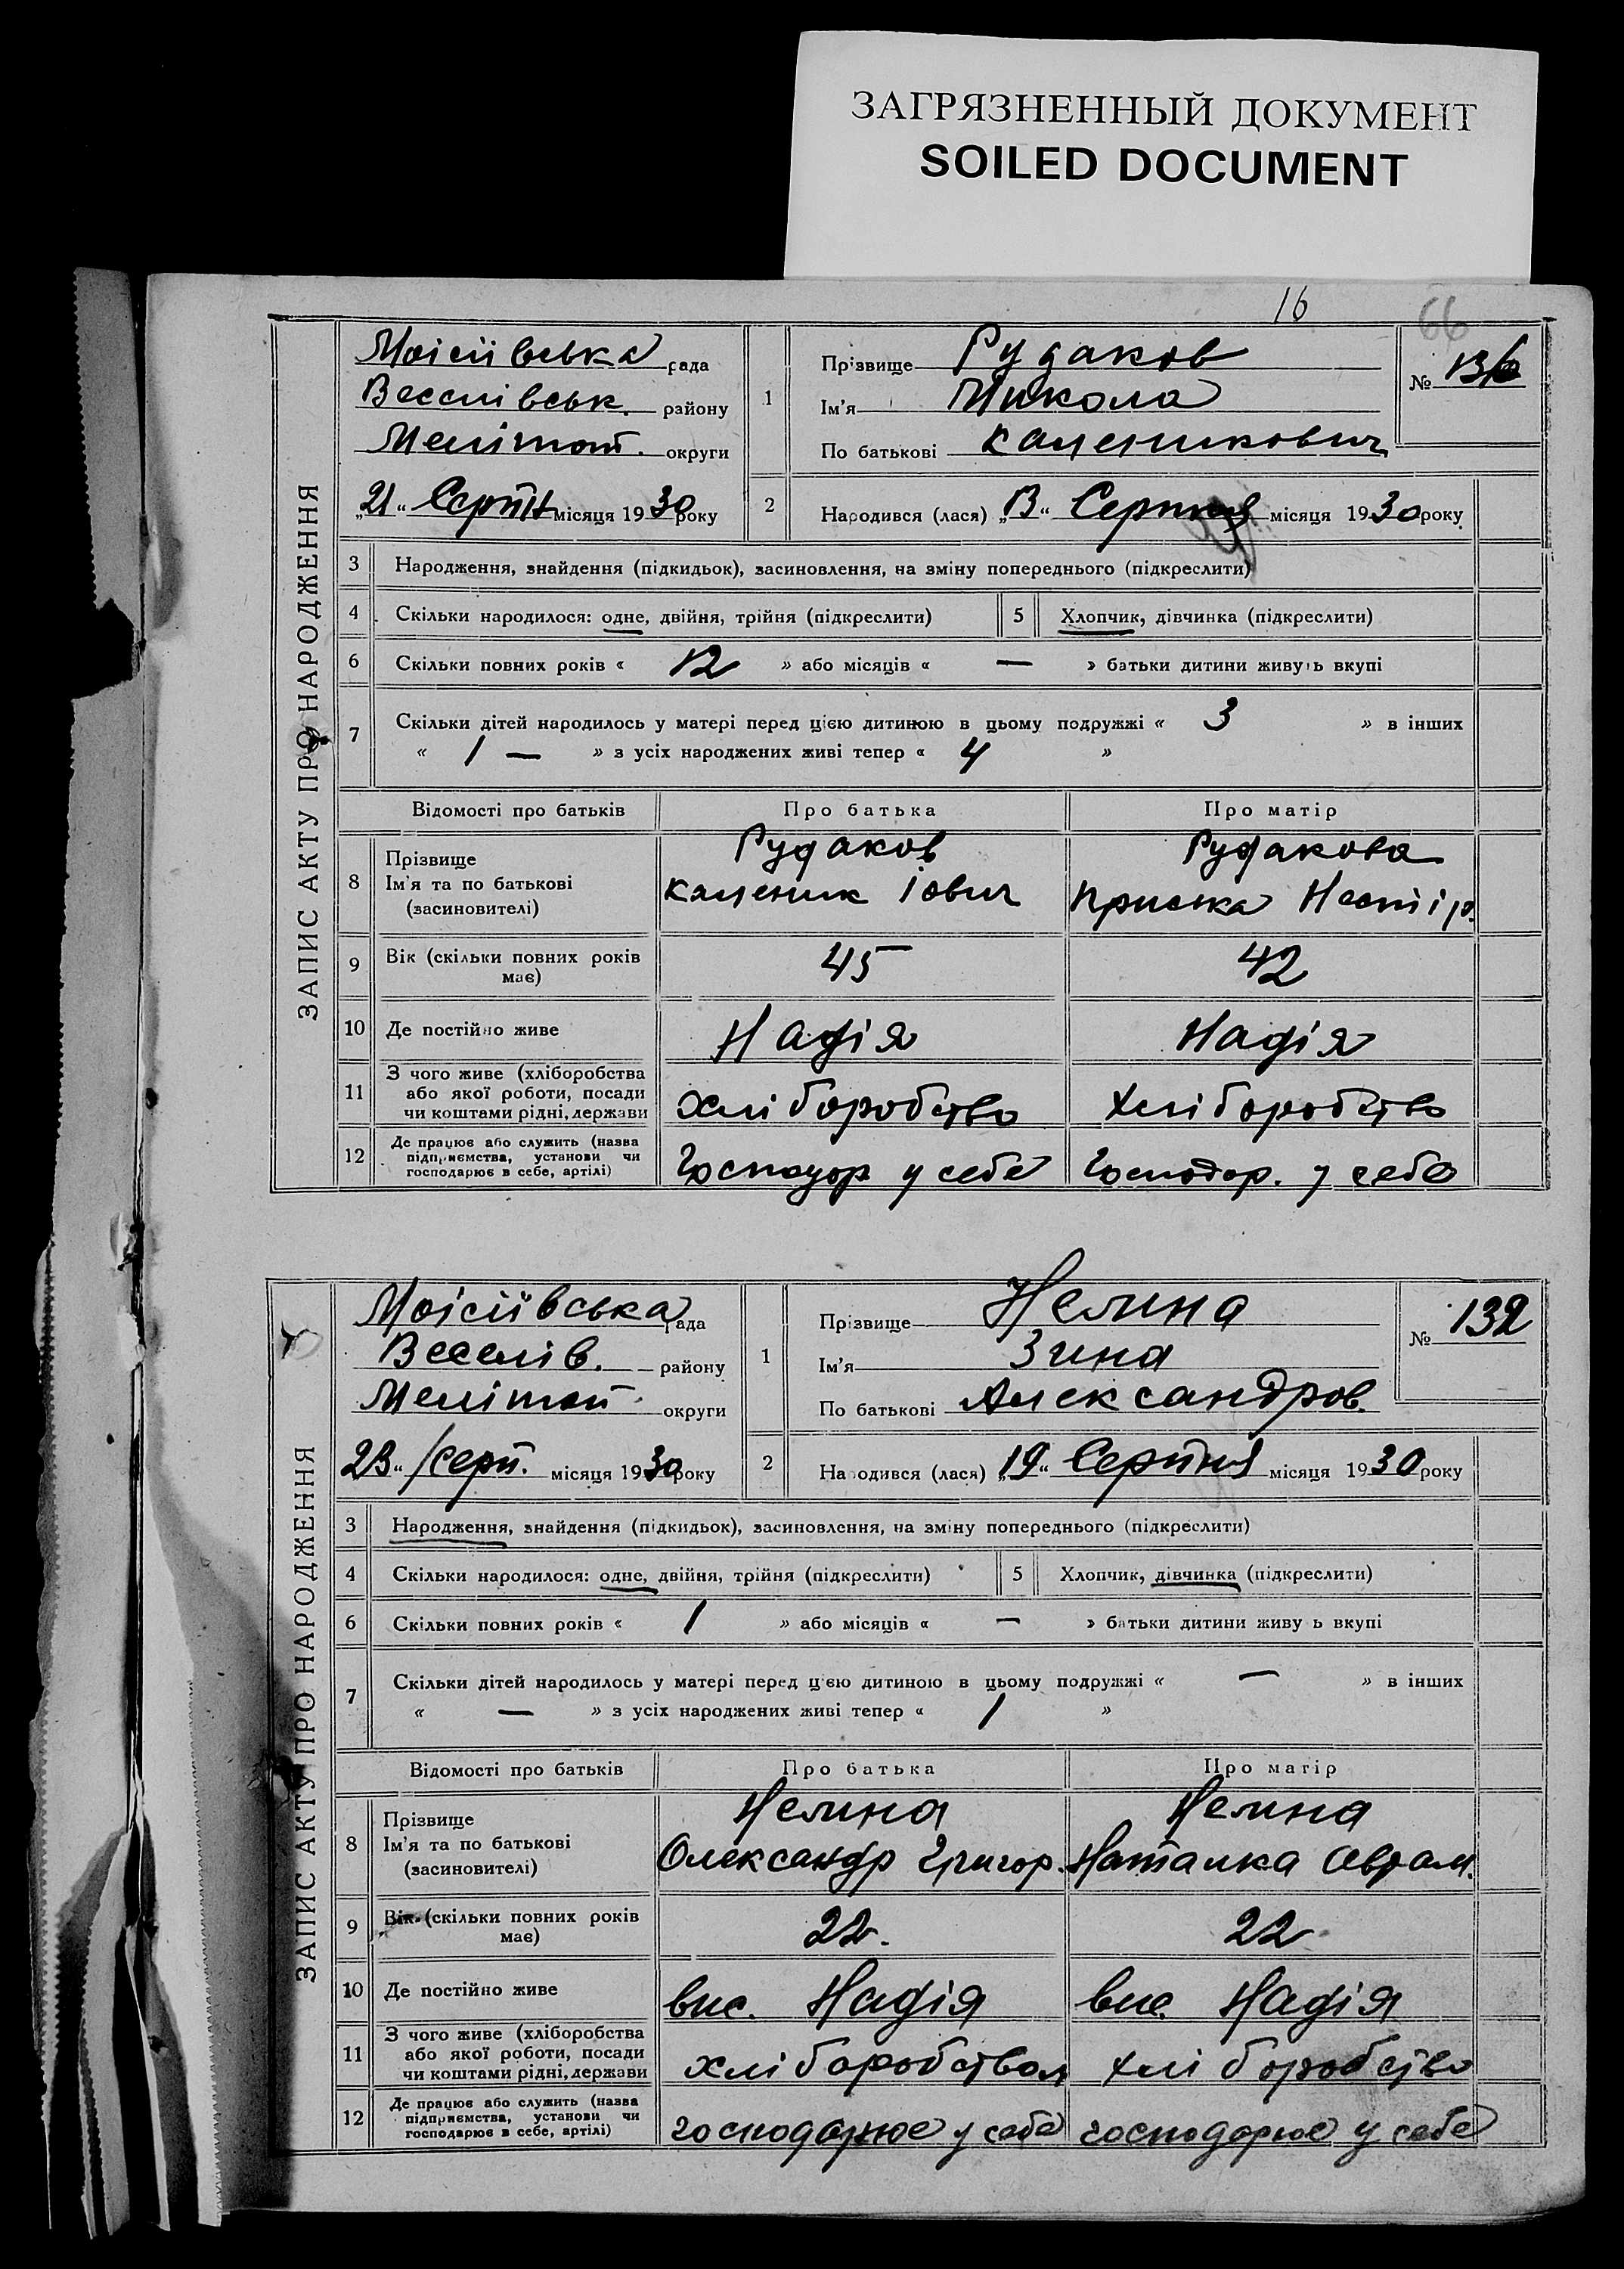 ЗАГРЯЗНЕННЫЙ ДОКУМЕНТ
SOILED DOCUMENT
16
66
ЗАПИС АКТУ ПРО НАРОДЖЕННЯ
Моісіївська рада
Веселівськ. району
Мелітоп. округи
„21“ Серпн місяця 1930 року
1 Прізвище Рудаков
Ім'я Микола
По батькові Каленикович
№
2 Народився (лася) „13“ Серпня місяця 1930 року
3 Народження, знайдення (підкидьок), засиновлення, на зміну попереднього (підкреслити)
4 Скільки народилося: одне, двійня, трійня (підкреслити) 5 Хлопчик, дівчинка (підкреслити)
6 Скільки повних років « 12 » або місяців « — » батьки дитини живуть вкупі
7 Скільки дітей народилось у матері перед цією дитиною в цьому подружжі « 3 » в інших
« 1 — » з усіх народжених живі тепер « 4 »
Відомості про батьків Про батька Про матір
8 Прізвище Рудаков Рудакова
Ім'я та по батькові Каленик Іович Приська Нестір.
(засиновителі)
9 Вік (скільки повних років має) 45 42
10 Де постійно живе Надія Надія
11 З чого живе (хліборобства
або якої роботи, посади
чи коштами рідні, держави хліборобство хліборобство
12 Де працює або служить (назва
підприємства, установи чи
господарює в себе, артілі) Господор у себе Господор. у себе
ЗАПИС АКТУ ПРО НАРОДЖЕННЯ
Моісіївська рада
Веселів. району
Мелітоп. округи
23“ Серп. місяця 1930 року
1 Прізвище Нелина
Ім'я Зина
По батькові Александров.
№ 132
2 Народився (лася) „19“ Серпня місяця 1930 року
3 Народження, знайдення (підкидьок), засиновлення, на зміну попереднього (підкреслити)
4 Скільки народилося: одне, двійня, трійня (підкреслити) 5 Хлопчик, дівчинка (підкреслити)
6 Скільки повних років « 1 » або місяців « — » батьки дитини живуть вкупі
7 Скільки дітей народилось у матері перед цією дитиною в цьому подружжі « — » в інших
« — » з усіх народжених живі тепер « 1 »
Відомості про батьків Про батька Про матір
8 Прізвище Нелина Нелина
Ім'я та по батькові Олександр Григор. Наталка Аврам.
(засиновителі)
9 Вік (скільки повних років має) 22. 22
10 Де постійно живе вис. Надія вис. Надія
11 З чого живе (хліборобства
або якої роботи, посади
чи коштами рідні, держави хліборобством хліборобство
12 Де працює або служить (назва
підприємства, установи чи
господарює в себе, артілі) господарює у себе господарює у себе